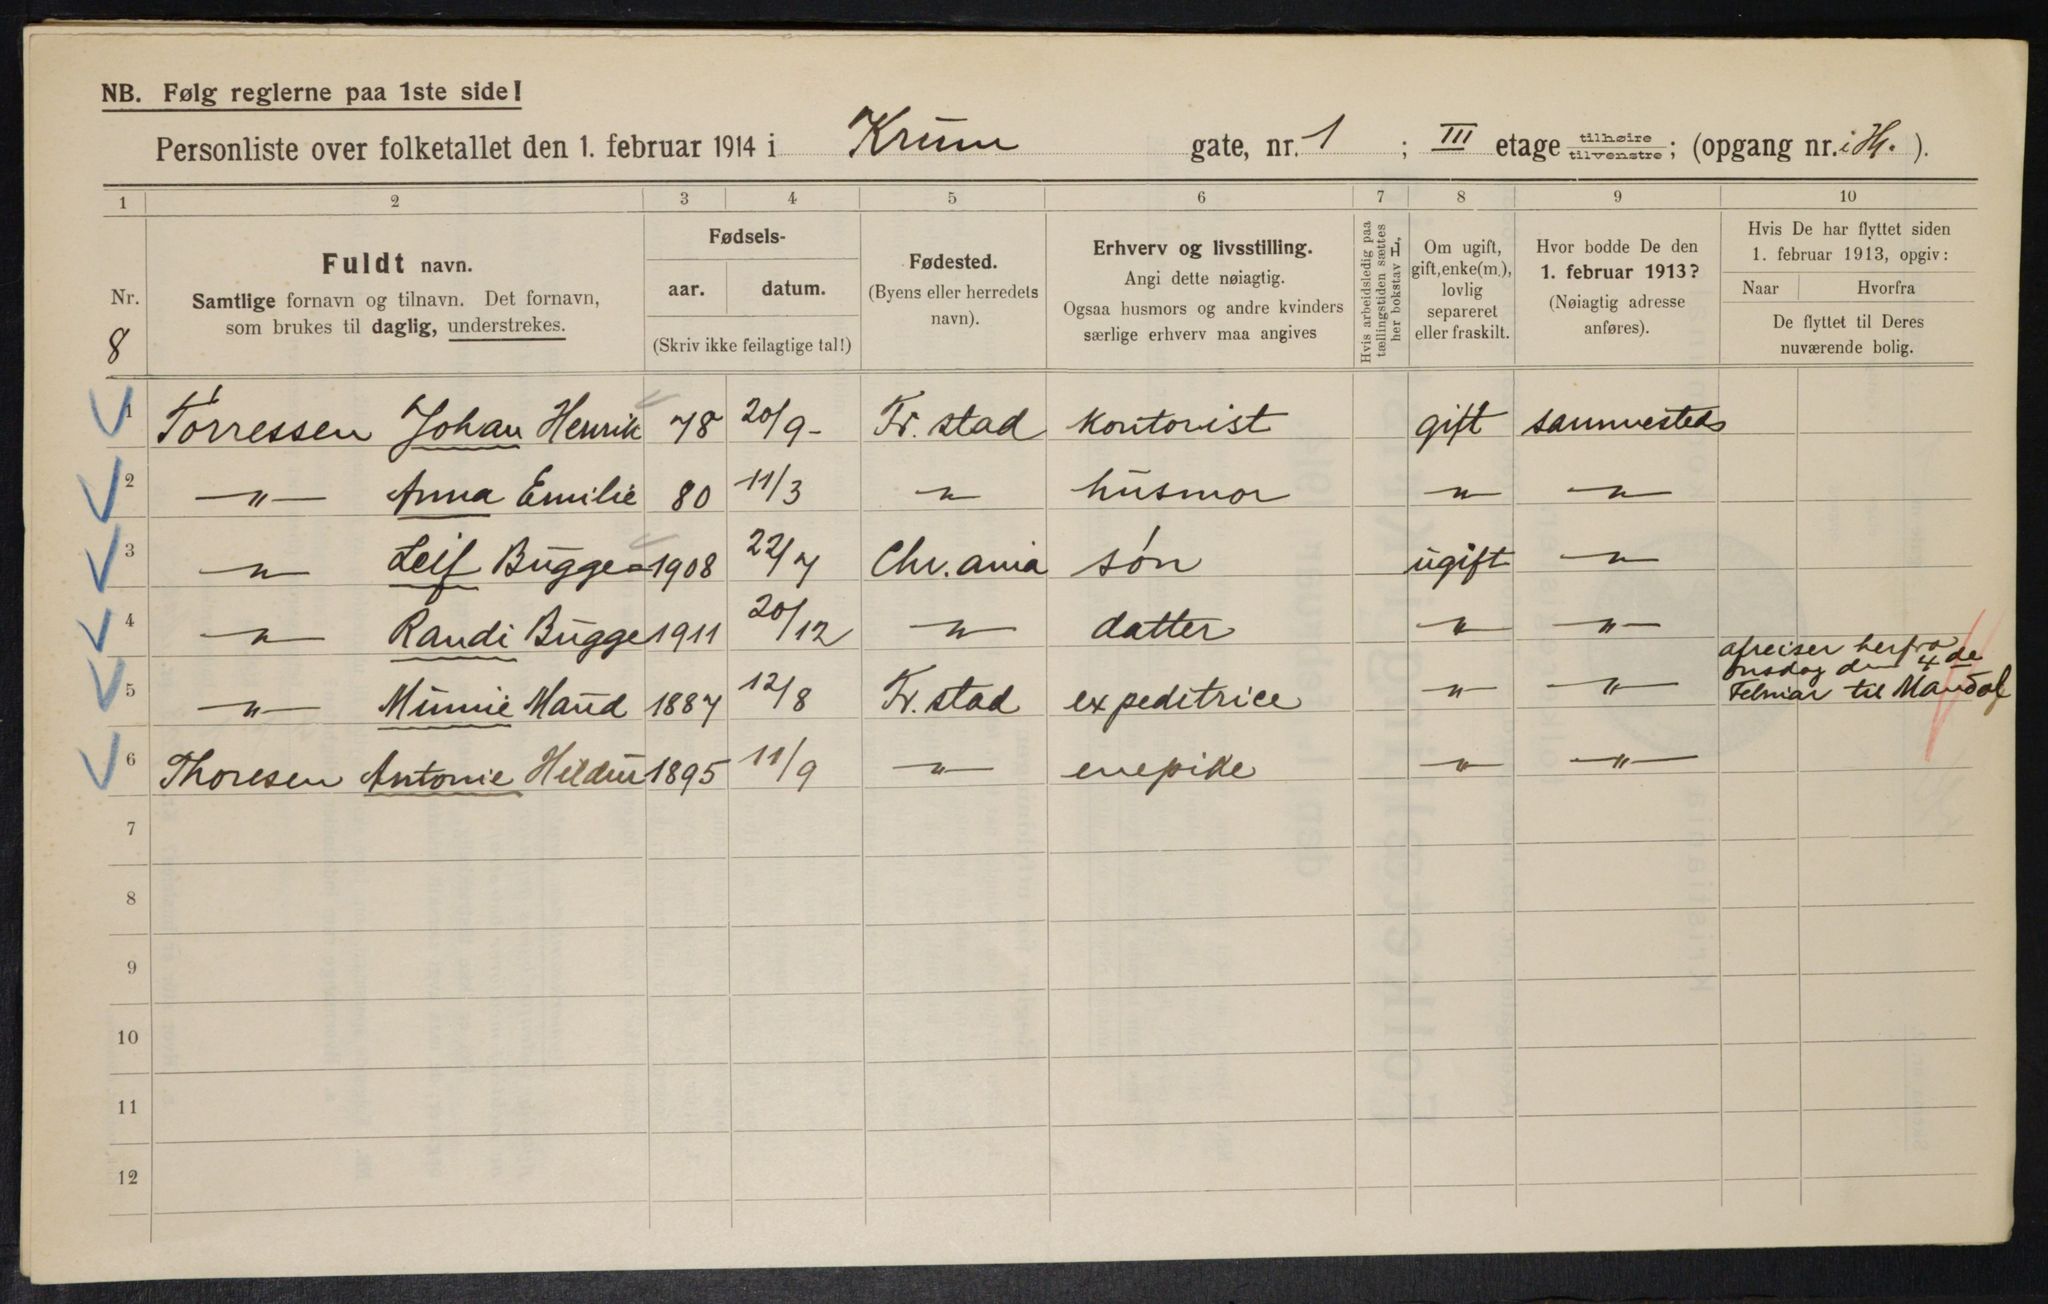 NB. Følg reglerne paa 1ste side!
Personliste over folketallet den 1. februar 1914 i Krum gate, nr. 1 ; III etage tilhøire tilvenstre; (opgang nr. i H. ).
1 2 3 4 5 6 7 8 9 10
Nr.
8
Fuldt navn.
Samtlige fornavn og tilnavn. Det fornavn,
som brukes til daglig, understrekes.
Fødsels-
aar. datum.
(Skriv ikke feilagtige tal!)
Fødested.
(Byens eller herredets
navn).
Erhverv og livsstilling.
Angi dette nøiagtig.
Ogsaa husmors og andre kvinders
særlige erhverv maa angives
Hvis arbeidsledig paa
tællingstiden sættes
her bokstav L.
Om ugift,
gift, enke(m.),
lovlig
separeret
eller fraskilt.
Hvor bodde De den
1. februar 1913?
(Nøiagtig adresse
anføres).
Hvis De har flyttet siden
1. februar 1913, opgiv:
Naar Hvorfra
De flyttet til Deres
nuværende bolig.
1 Torressen Johan Henrik 78 20/9- Fr. stad kontorist gift sammesteds
2 —"— Anna Emilie 80 11/3 —"— husmor —"— —"—
3 —"— Leif Bugge 1908 22/7 Chr. ania søn ugift —"—
4 —"— Randi Bugge 1911 20/12 —"— datter —"— —"—
5 —"— Minnie Maud 1887 12/8 Fr. stad expeditrice —"— —"— afreiser herfra
onsdag den 4de
Februar til Mandal
6 Thoresen Antonie Hildur 1895 11/9 —"— enepike —"— —"—
7
8
9
10
11
12